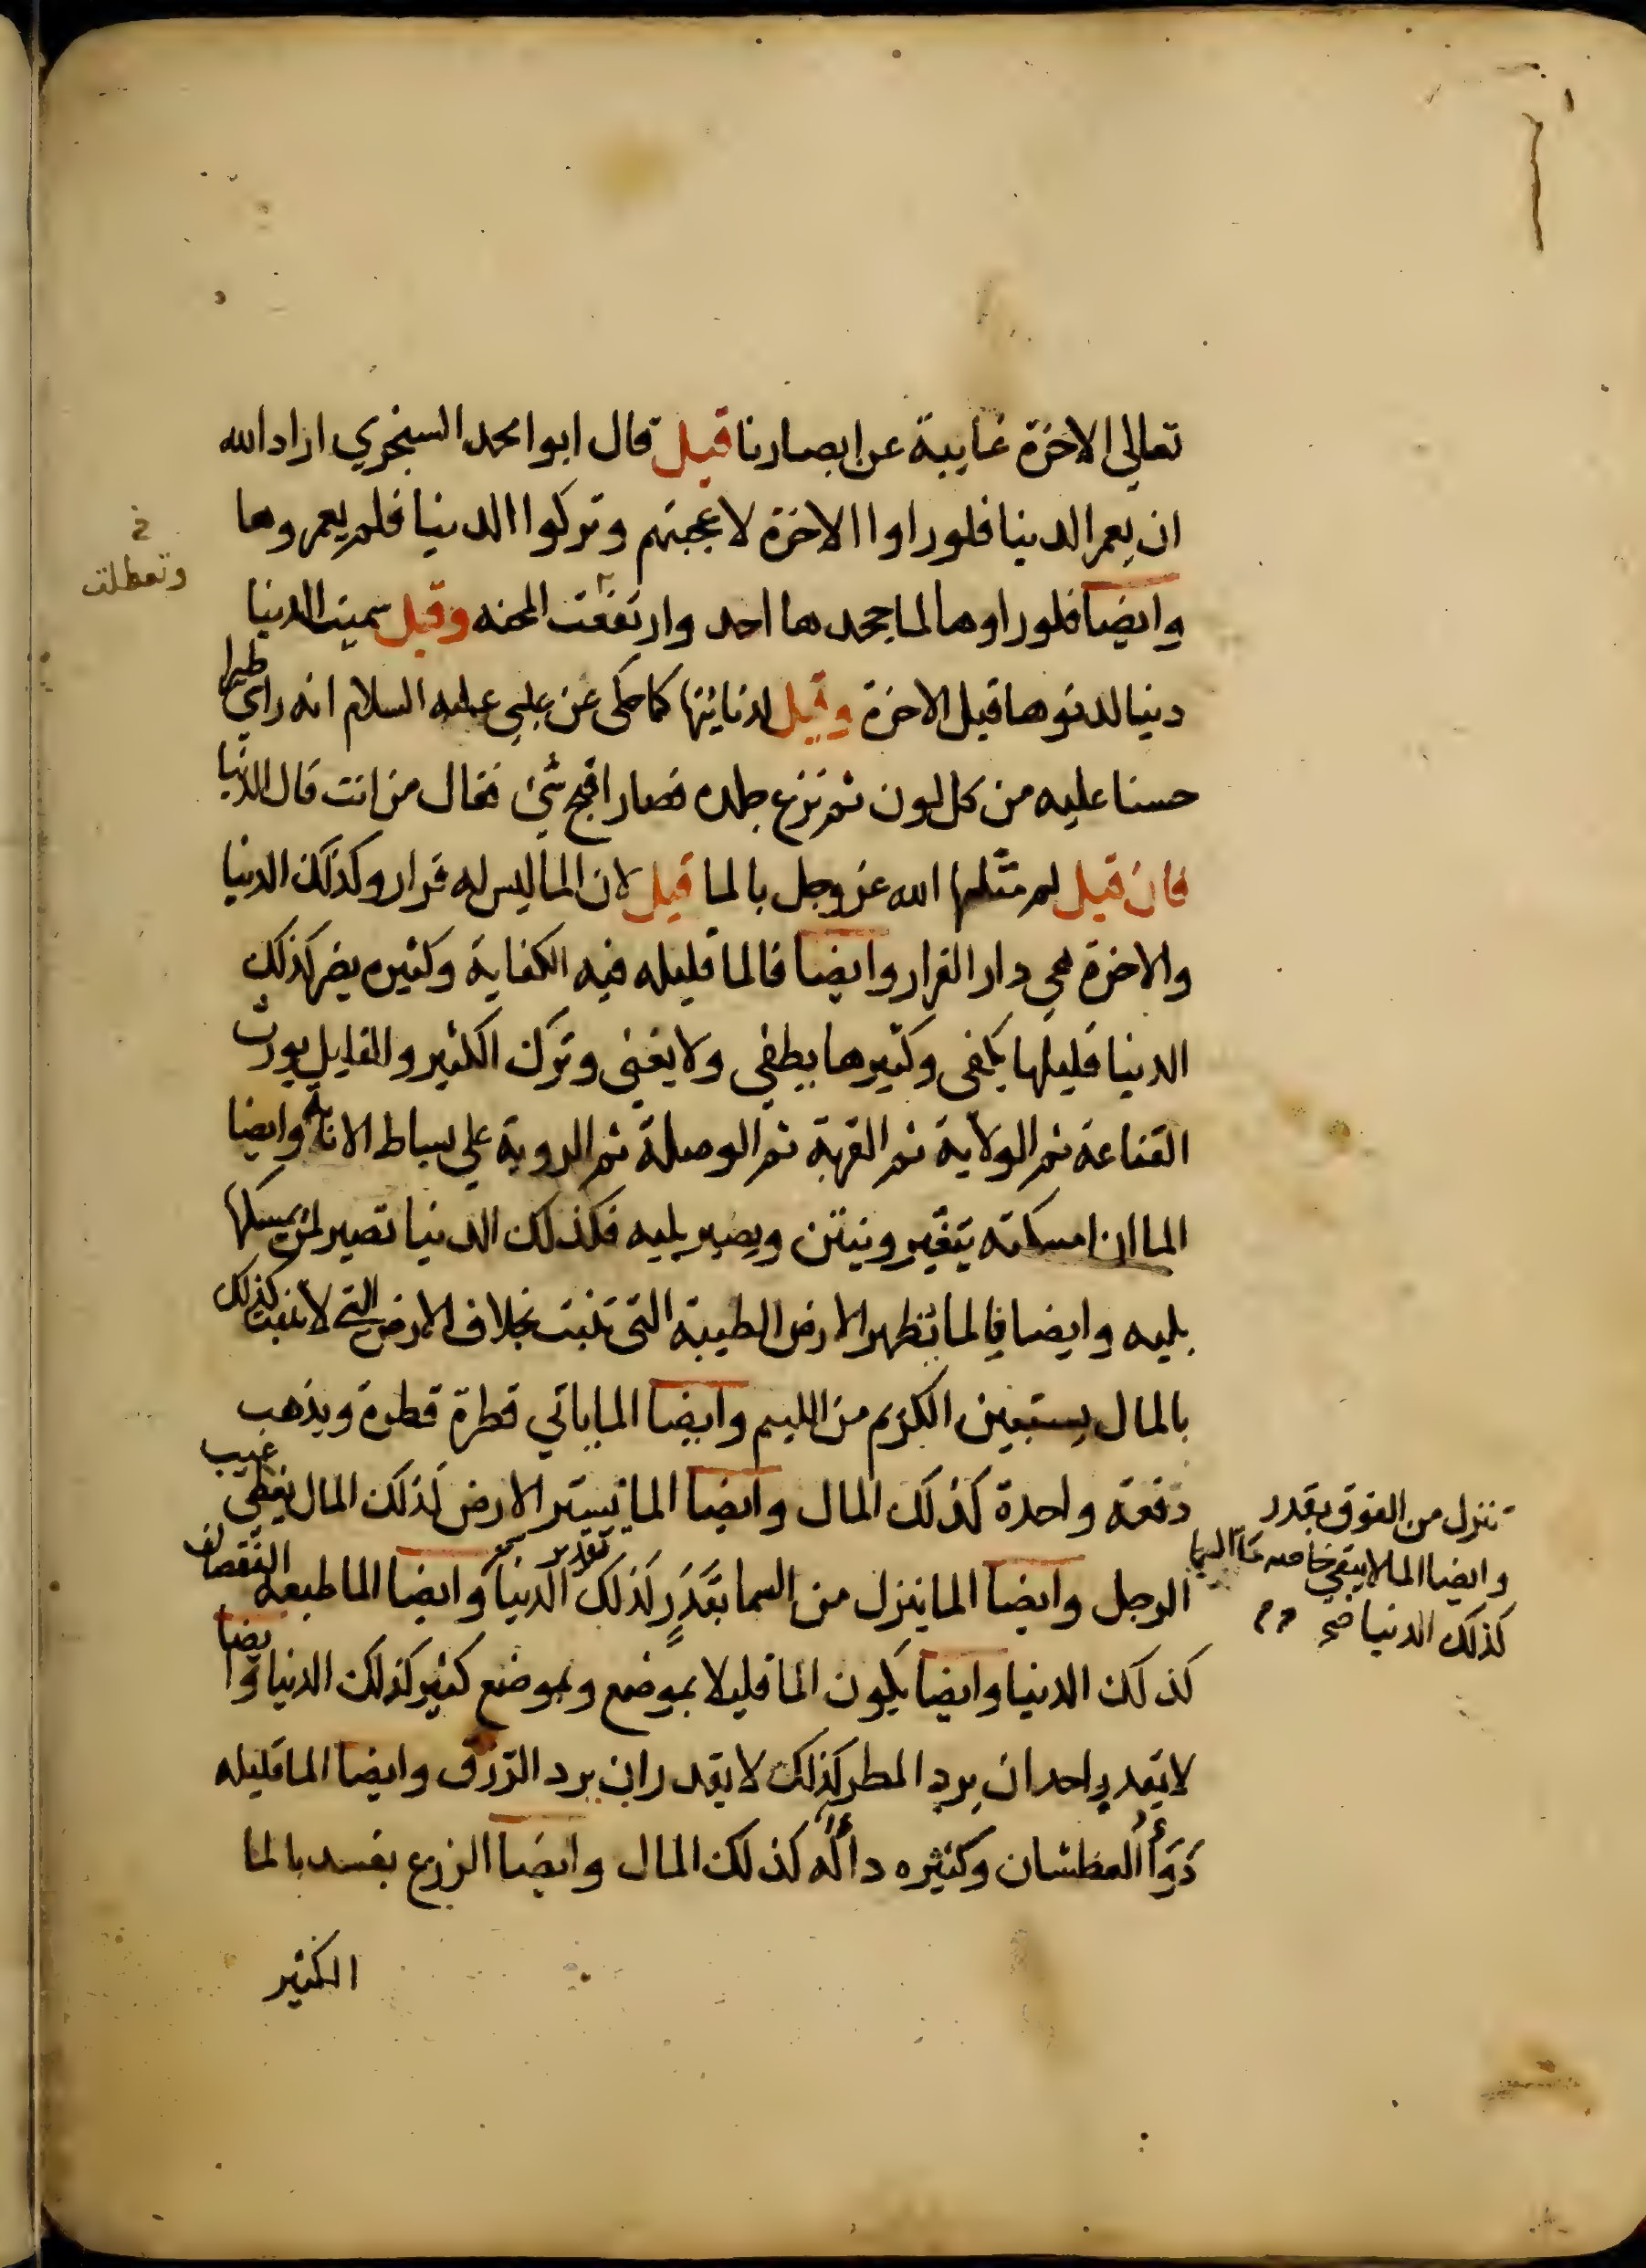 تعالى الاخرة غايبة عن ابصارنا قيل قال ابوا محمد السنجري اراد الله
ان يعمر الدنيا فلو راوا الاخرة لاعجبتهم وتركوا الدنيا فلم يعمروها
خ
وتعطلت
وايضا فلو راوها لما جحدها احد وارتفعت المحنه وقيل سميت الدنيا
دنيا لدنوها قبل الاخرة وقيل لدنايتها كما حكى عن علي عليه السلام انه راي طيرا
حسنا عليه من كل لون ثم نزع جلده فصار اقبح شئ فقال من انت قال الدنيا
فان قيل لم مثلها الله عز وجل بالما قيل لان الما ليس له قرار وكذلك الدنيا
والاخرة هي دار القرار وايضا فالما قليله فيه الكفاية وكثيره يضر كذلك
الدنيا قليلها يكفى وكثيرها يطغي ولا يغني وترك الكثير والقليل يورث
القناعة ثم الولاية ثم القربة ثم الوصلة ثم الروية على بساط الانابة وايضا
الما ان امسكته يتغير وينتن ويصير بليه فكذلك الدنيا تصير لمن يمسكها
بليه وايضا فالما تظهر الارض الطيبة التي تنبت بخلاف الارض التي لا تنبت كذلك
بالمال يستبين الكريم من الليم وايضا الما ياتي قطرة قطرة ويذهب
دفعة واحدة كذلك المال وايضا الما يستر الارض كذلك المال يغطي عيب
الرجل وايضا الما ينزل من السما بقدر كذلك الدنيا وايضا الما طبعه النقصان
تقدير
تنزل من الفوق بقدر
وايضا الما لا يبقي
كذلك الدنيا صح
كذلك الدنيا وايضا يكون الما قليلا بموضع وبموضع كثير كذلك الدنيا وايضا
لا يقدر احد ان يرد المطر كذلك لا يقدر ان يرد الرزق وايضا الما قليله
دَوَأُ العطشان وكثيره دأ له كذلك المال وايضا الزرع يفسد بالما
الكثير